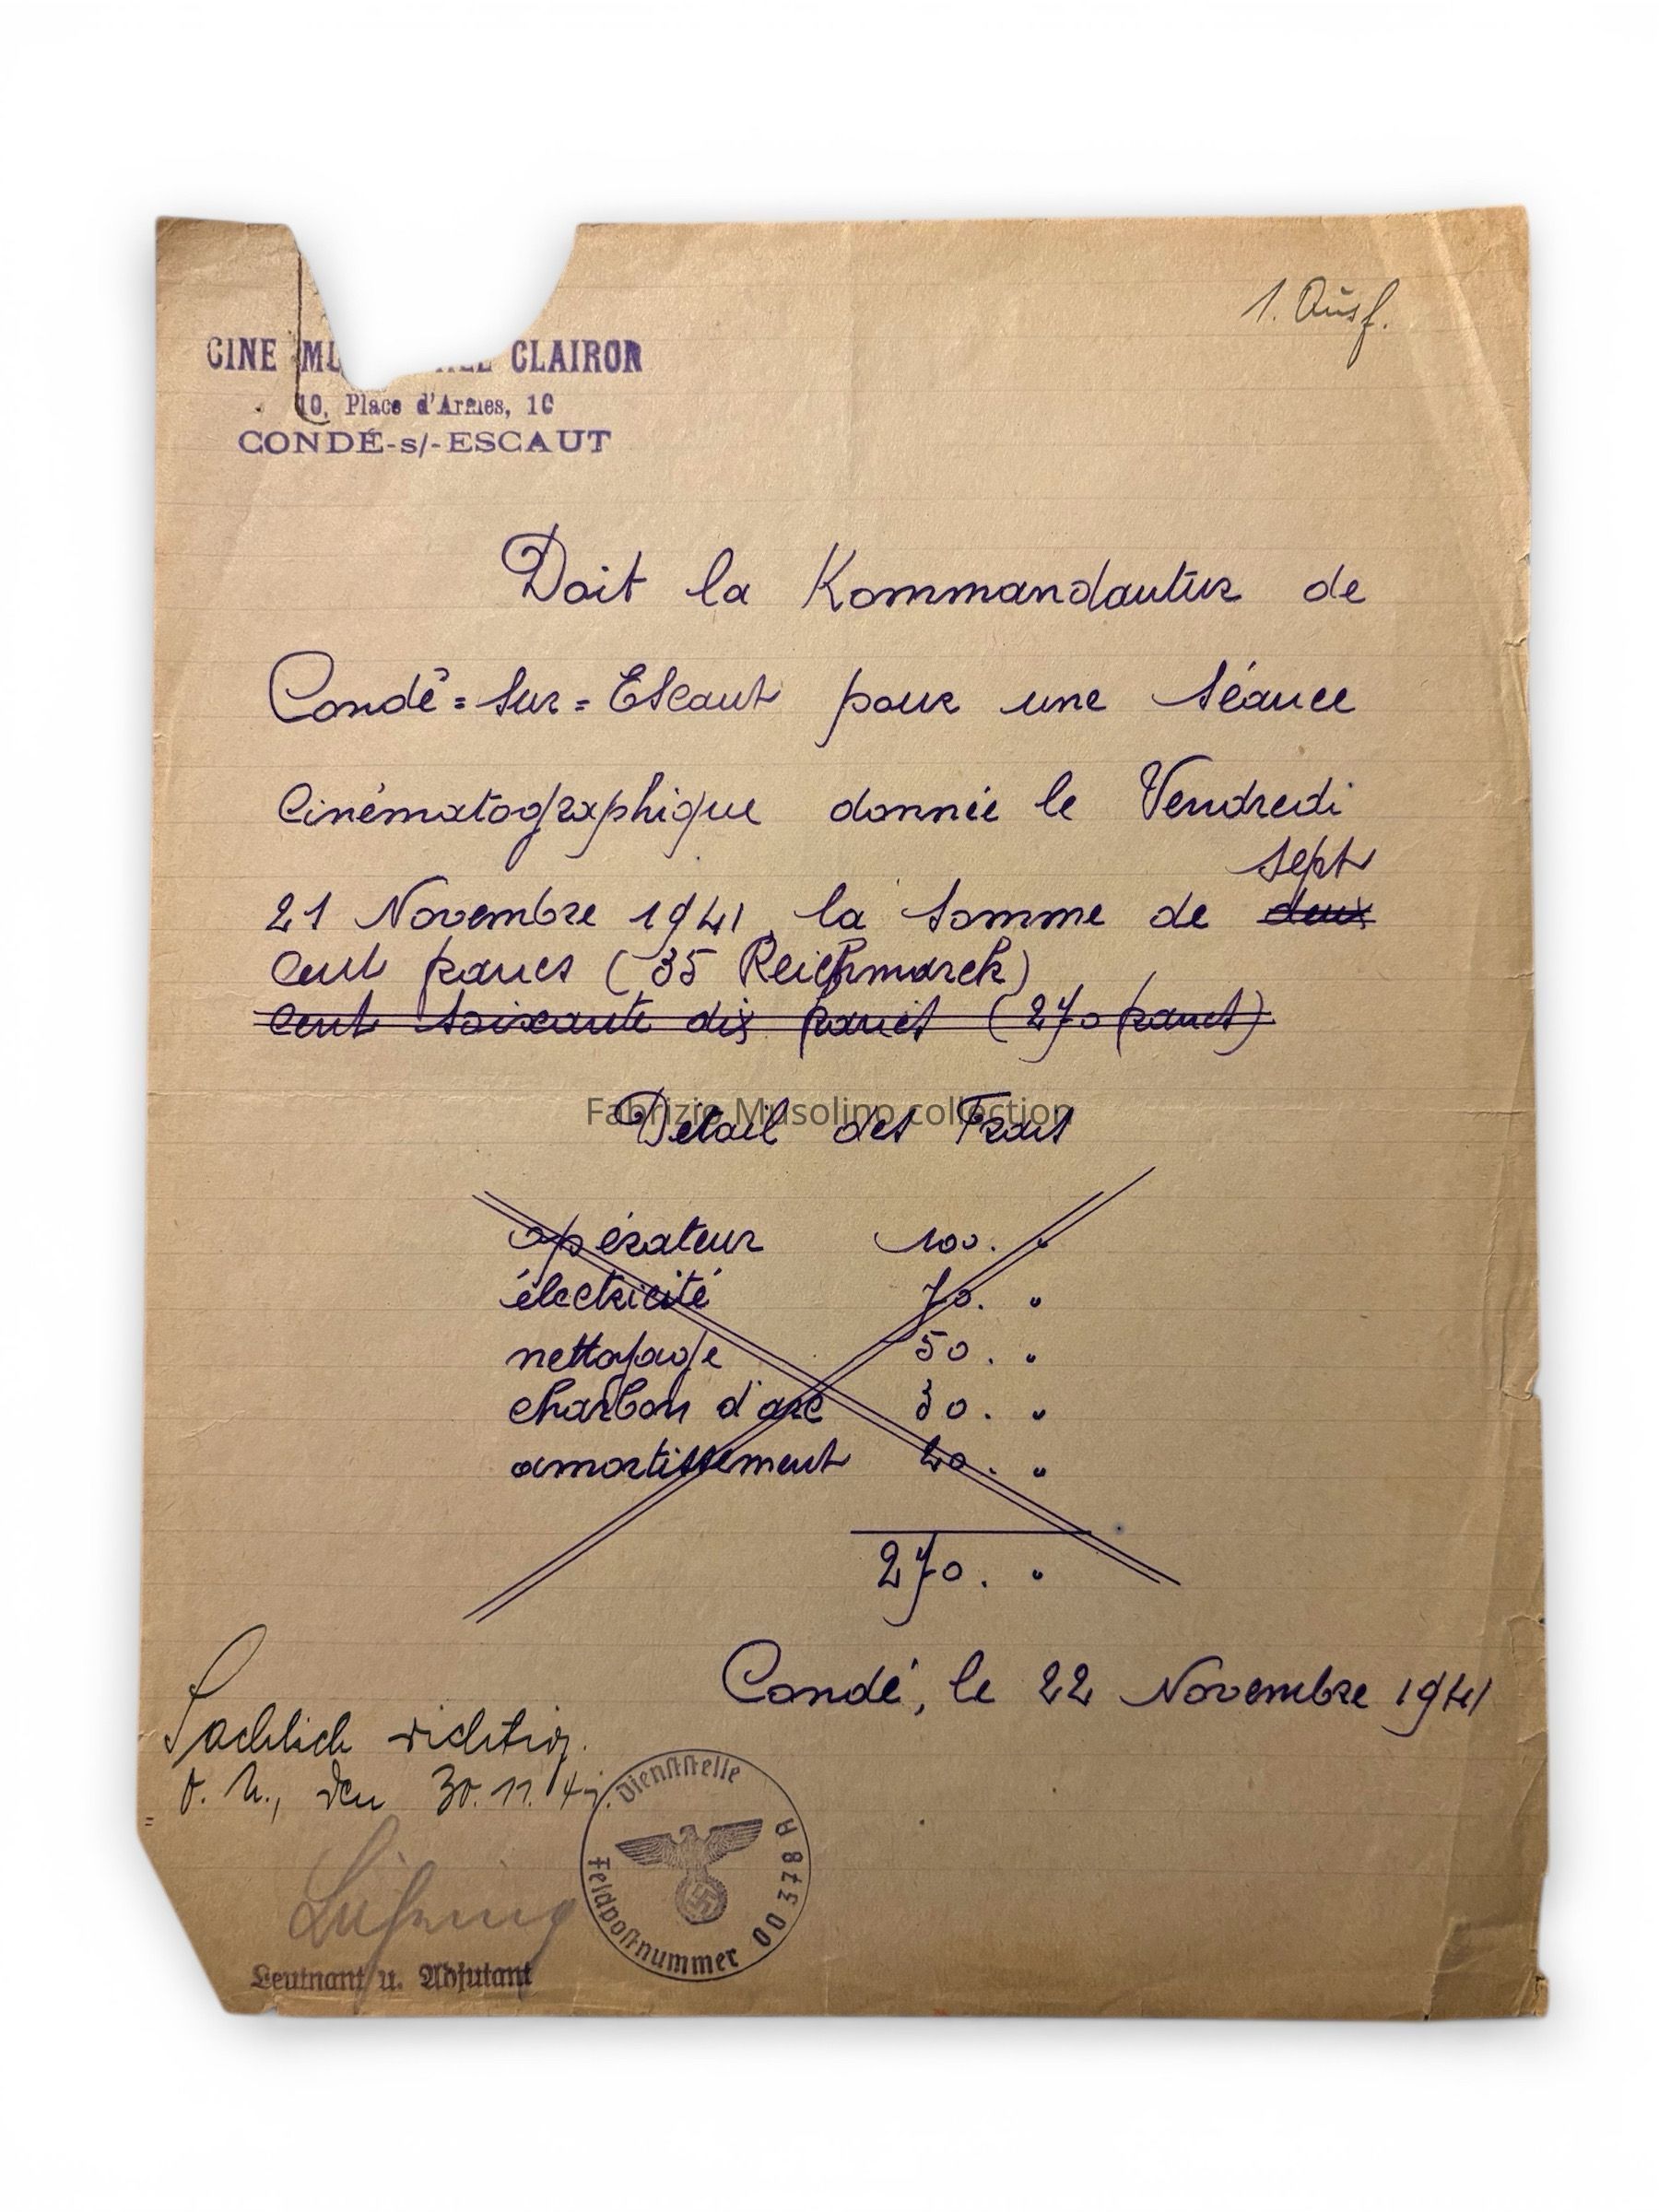 1. Ausf.
CINE MU CLAIRON
10, Place d'Armes, 10
CONDÉ-s/-ESCAUT
Doit la Kommandantur de
Condé=sur=Escaut pour une séance
cinématographique donnée le Vendredi
sept
21 Novembre 1941, la somme de deux
cent francs (35 Reichmarck)
cent soixante dix francs (270 francs)
Fabrizio Musolino collection
Détail des Frais
opérateur 100. "
électricité 70. "
nettoyage 50. "
charbon d'arc 30. "
amortissement 20. "
270. "
Condé, le 22 Novembre 1941
Sachlich richtig.
O. U., den 30.11.41.
Dienststelle
Feldpostnummer 00378 A
Leutnant u. Adjutant